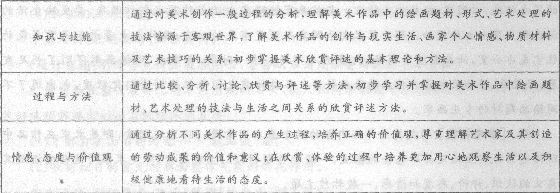 知识与技能
通过对美术创作一般过程的分析,理解美术作品中的绘画题材、形式、艺术处理的
技法皆源于客观世界,了解美术作品的创作与现实生活、画家个人情感、物质材料
及艺术技巧的关系,初步掌握美术欣赏评述的基本理论和方法。
过程与方法
通过比较、分析、讨论、欣赏与评述等方法,初步学习并掌握对美术作品中绘画题
材、艺术处理的技法与生活之间关系的欣赏评述方法。
情感、态度与价值观
通过分析不同美术作品的产生过程,培养正确的价值观,尊重理解艺术家及其创造
的劳动成果的价值和意义;在欣赏、体验的过程中培养更加用心地观察生活以及积
极健康地看待生活的态度。